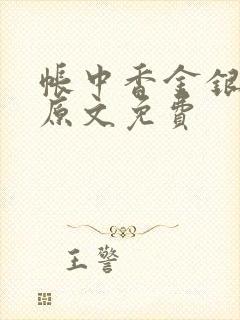 帐中香金银
原文免費
王警